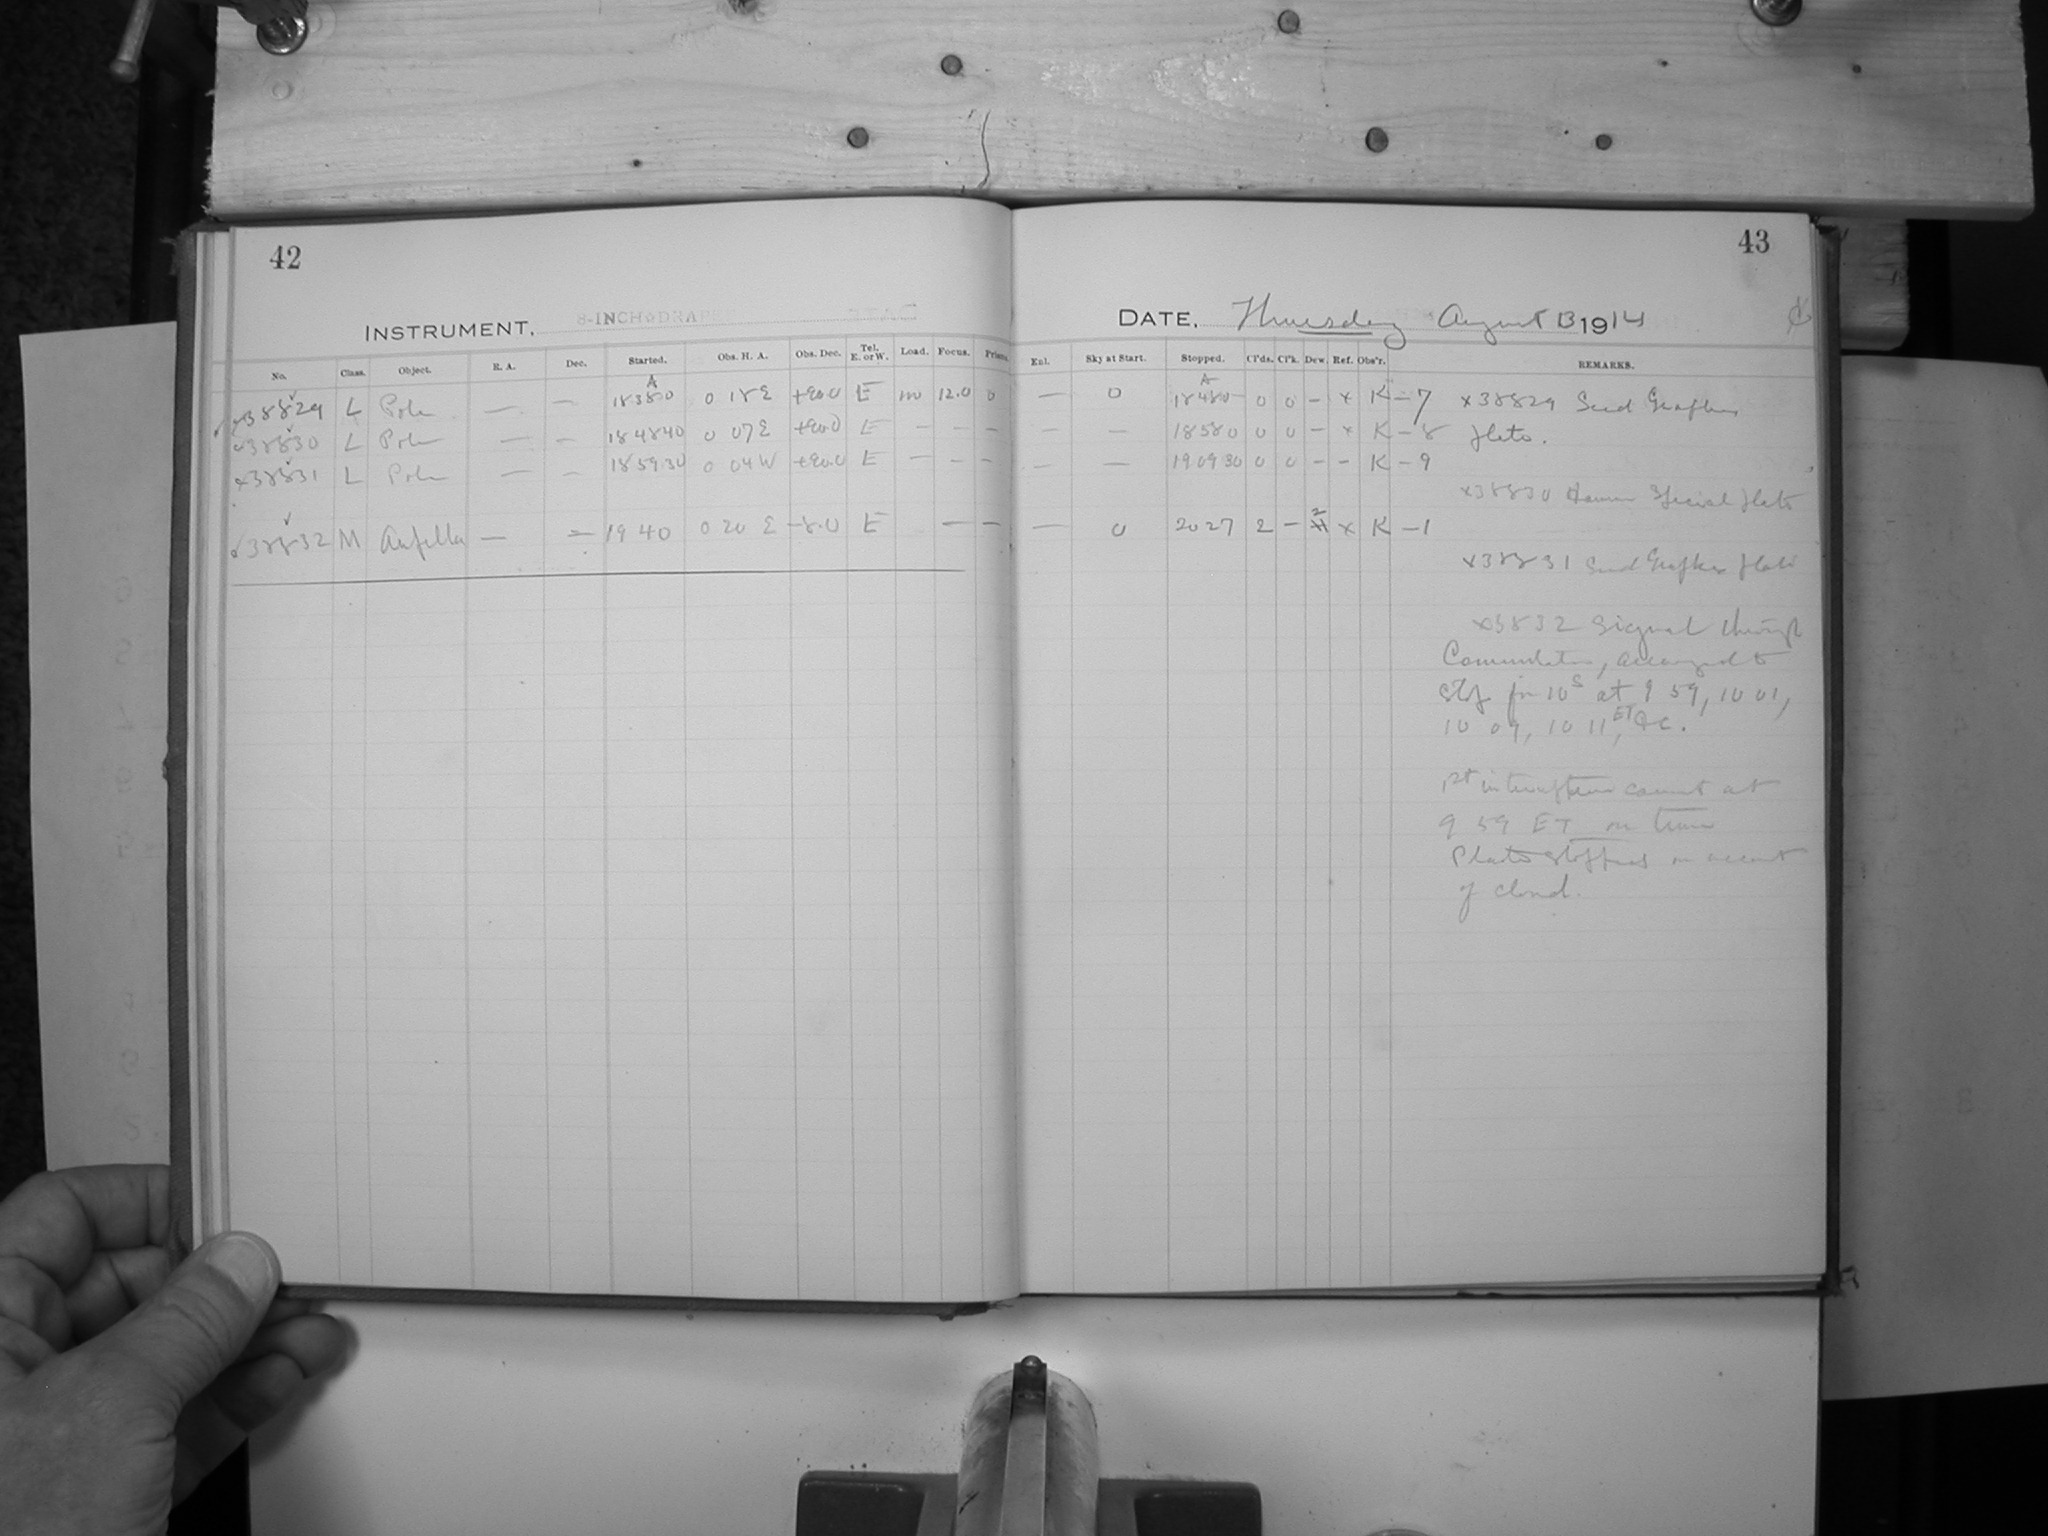 42
43
INSTRUMENT. 8-INCH DRAPER
DATE, Thursday August 13 1914
No. Class. Object. R. A. Dec. Started. Obs. H. A. Obs. Dec. Tel. E. or W. Load. Focus. Prism. Enl. Sky at Start. Stopped. Cl'ds. Cl'k. Dew. Ref. Obs'r. REMARKS.
x38829 L Pole — — 18380 0 18E +90.0 E m 12.0 0 — 0 18480 0 0 - x K-7
x38830 L Pole — — 184840 0 07E +90.0 E - - - — — 18580 0 0 - x K-8
x38831 L Pole — — 185930 0 04W +90.0 E - - - — — 190930 0 0 - - K-9
x38832 M — = 19 40 0 20 E -8.0 E — - — 0 2027 2 - 2 x K-1
x38829 Seed
plate.
x38830 Special plate
x38831 Seed plate
x38832 Signal through
Commutator, arranged to
stop for 10s at 9 59, 10 01,
10 09, 10 11, ET &c.
1st interruption count at
9 59 ET on time
Plate stopped on account
of cloud.